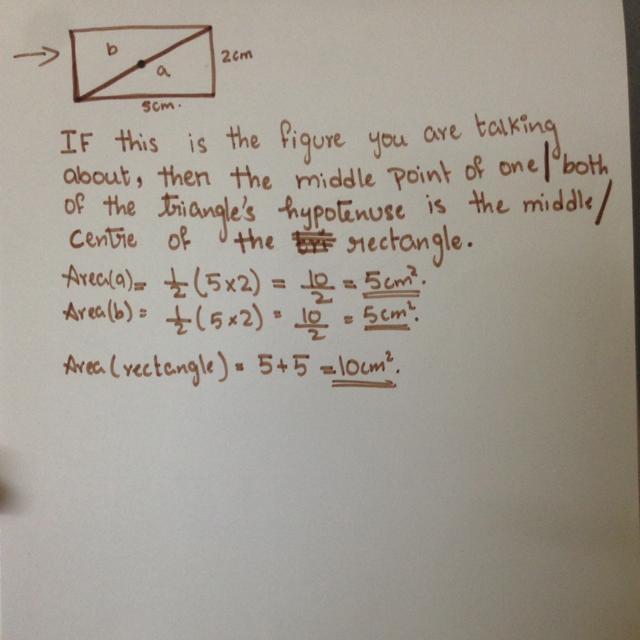 b
a
2cm
5cm.
IF this is the figure you are talking
about, then the middle point of one/both
of the triangle's hypotenuse is the middle/
Centre of the rectangle.
Area(a)= 1/2 (5×2) = 10/2 = 5cm².
Area(b) = 1/2 (5×2) = 10/2 = 5cm².
Area (rectangle) = 5+5 = 10cm².